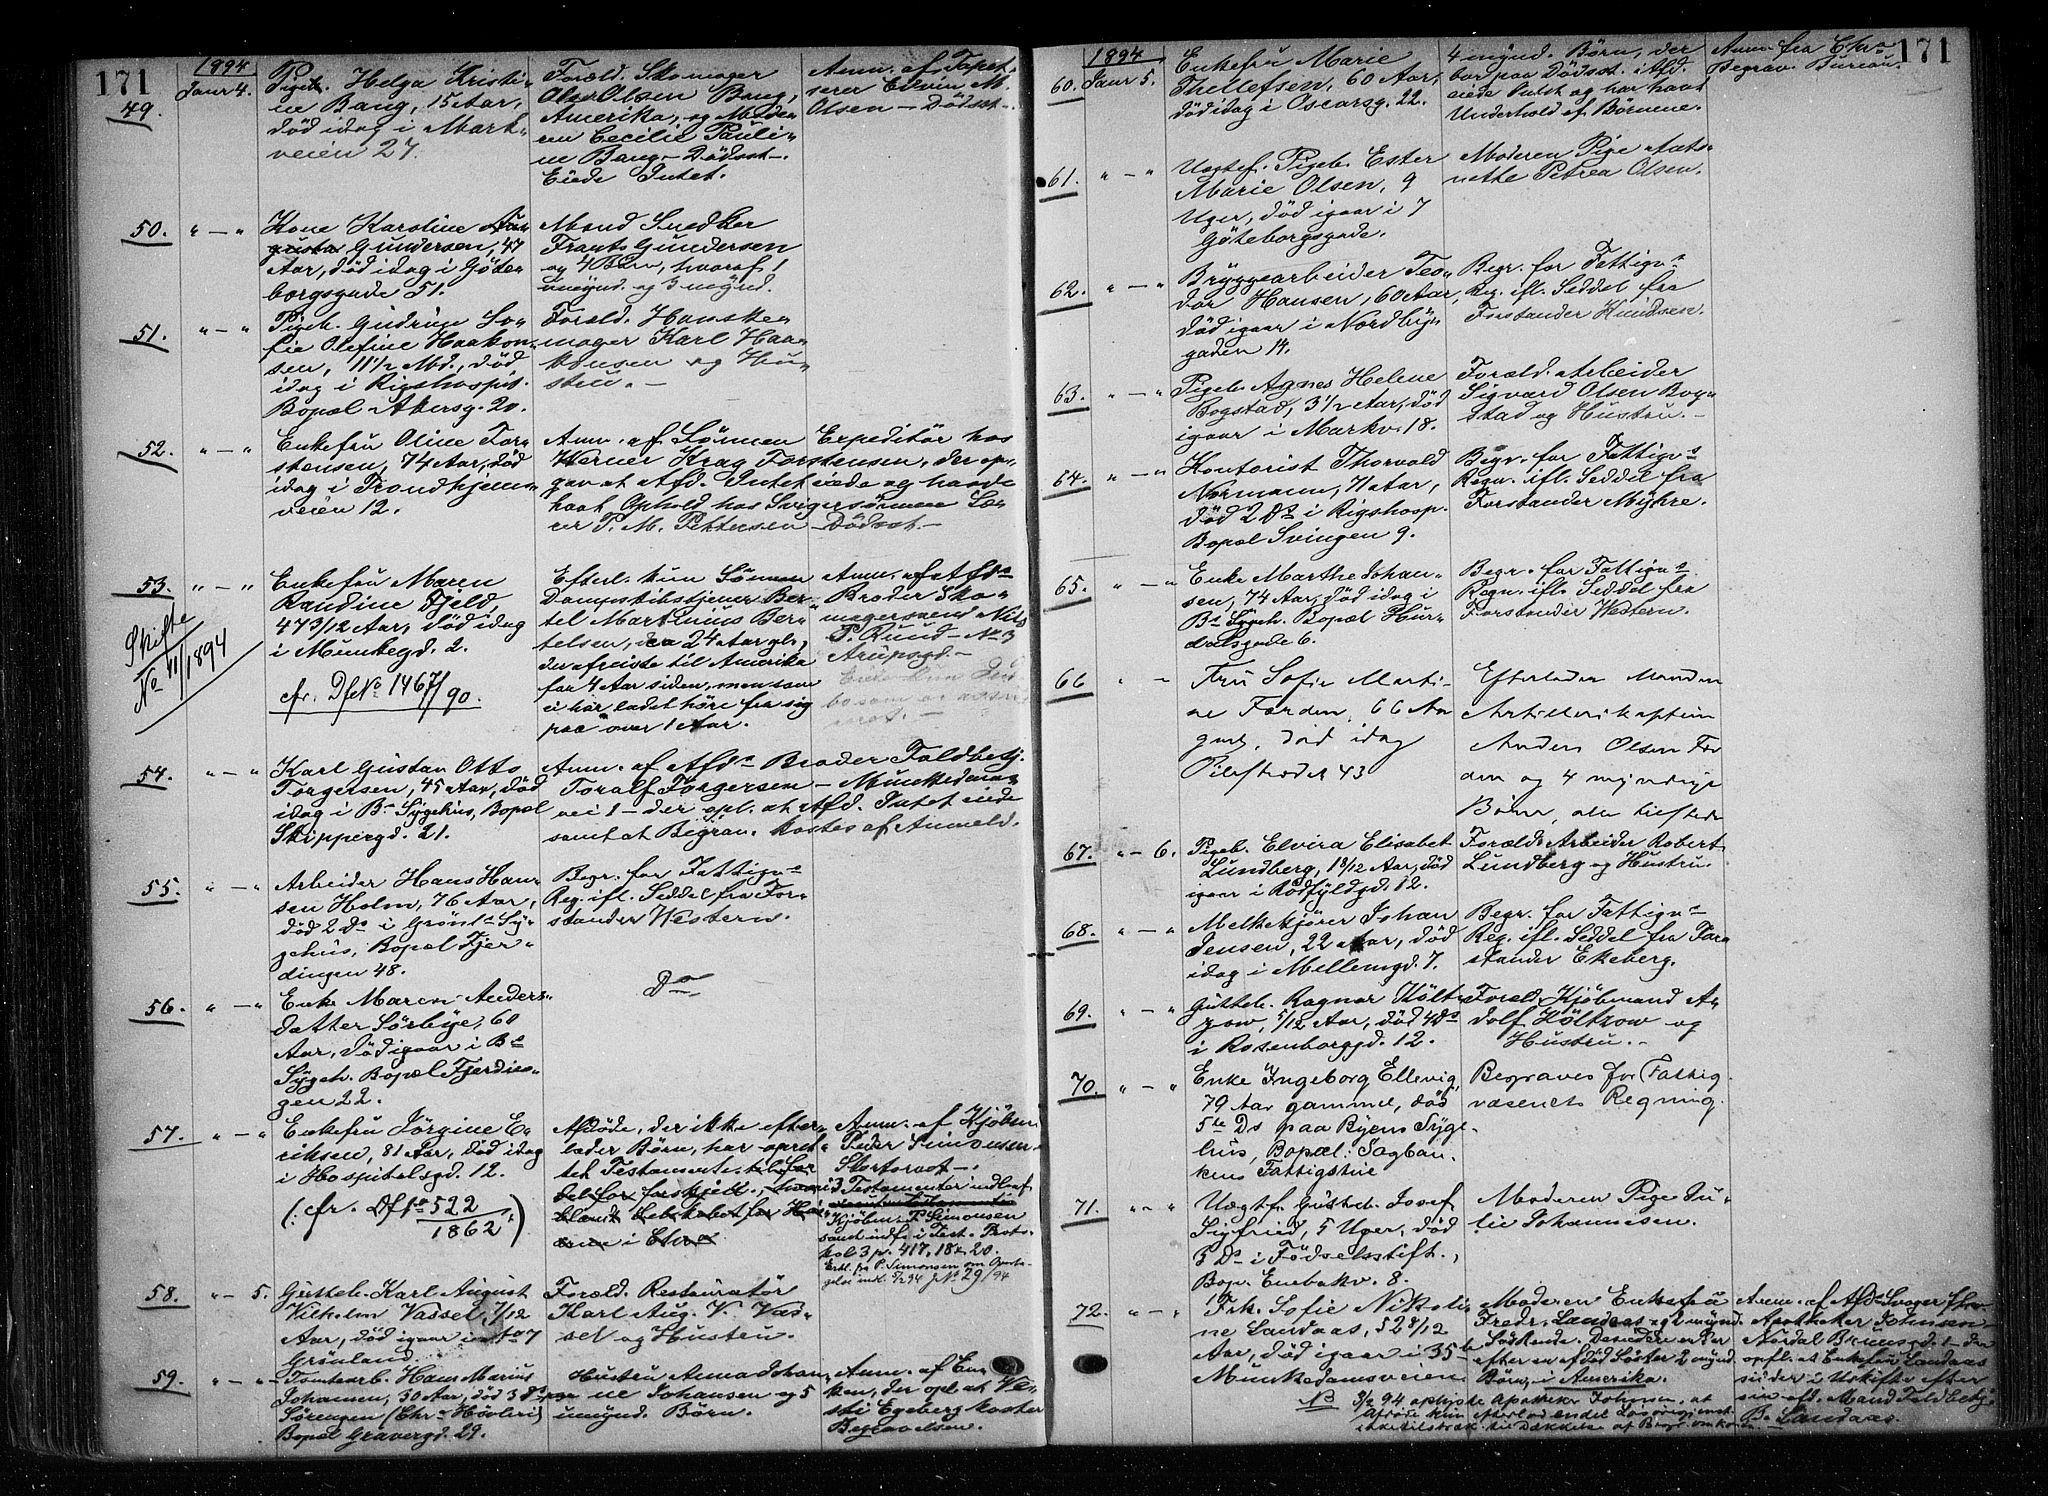 171
1894
49.
Janr 4.
Pige Helga Kristi-
ne Bang, 15 Aar,
død idag i Mark-
veien 27.
Foræld. Skomager
Ole Olsen Bang,
Amerika, og Mode-
ren Cecilie Pauli-
ne Bang – Dødsst.
Eiede Intet.
Anm. af Tapet-
serer Edvin M.
Olsen – Dødsst.
50.
" — "
Kone Karoline Au-
gusta Gundersen, 47
Aar, død idag i Gøte-
borgsgade 51.
Mand Snedker
Frants Gundersen
og 4 Børn, hvoraf 1
umynd. og 3 mynd.
51.
" — "
Pigeb. Gudrun So-
fie Olefine Haakon-
sen, 11 1/2 Md., død
idag i Rigshospit.
Bopæl Akersg. 20.
Foræld. Hanske-
mager Karl Haa-
konsen og Hu-
stru. —
52.
" — "
Enkefru Oline Tor-
stensen, 74 Aar, død
idag i Trondhjems-
veien 12.
Anm. af Sønnen Expeditør hos
Werner Krag Torstensen, der op-
gav at Afd. Intet eiede og havde
havt Ophold hos Svigersønnen Læ-
rer P. M. Pettersen – Dødsst. –
53.
" — "
Skifte
No 11/1894
Enkefru Maren
Randine Fjeld,
47 3/12 Aar, død idag
i Munkegd. 2.
cfr. Df No 1467/90.
Efterl. kun Sønnen
Dampskibstjener Ber-
tel Martinius Ber-
telsen, ca 24 Aar gl.,
der afreiste til Amerika
for 4 Aar siden, men som
ei har ladet høre fra sig
paa over 1 Aar.
Anm. af Afds
Broder Sko-
magersvend Nils
P. Rund – No 3
Arupsgd. –
54.
" — "
Karl Gustav Otto
Torgersen, 45 Aar, død
idag i Bs Sygehus, Bopæl
Skippergd. 21.
Anm. af Afds Broder Toldbetj.
Toralf Torgersen – Munkedams-
vei 1 – der opl. at Afd. Intet eiede
samt at Begrav. kostes af Anmeld.
55.
" — "
Arbeider Hans Han-
sen Holm, 76 Aar,
død 2 Ds i Grønls Sy-
gehus, Bopæl Fjer-
dingen 48.
Begr. for Fattigvs
Reg. ifl. Seddel fra For-
stander Western.
56.
" — "
Enke Maren Anders-
datter Sørbye, 60
Aar, død igaar i Bs
Sygeh. Bopæl Fjerdin-
gen 22.
Do
57.
" — "
Enkefru Jørgine E-
riksen, 81 Aar, død idag
i Hospitalsgd. 12.
(cfr. Df No 522/1862)
Afdøde, der ikke efter-
lader Børn, har opret-
tet Testamente til For-
del for forskjell.
Anm. af Kjøbm.
Peder Simonsen –
Stortorvet –
3 Testamenter indlev.
Kjøbm. P. Simonsen
samt indf. i Test. Proto-
kol 3 p. 417, 18 & 20.
Erkl. fra P. Simonsen om Overta-
gelse indk. 5/2 94 J No 29/94
58.
" — 5.
Gutteb. Karl August
Vilhelm Vassel, 7/12
Aar, død igaar i No 7
Grønland.
Foræld. Restauratør
Karl Aug. V. Vas-
sel og Hustru.
59.
" — "
Tomtearb. Hans Marius
Johansen, 30 Aar, død 3 Ds
Sørengen (Chra Høvleri)
Bopæl Gravergd. 29.
Hustru Anna Johan-
ne Johansen og 5
umynd. Børn.
Anm. af En-
ken, der opl. at Ve-
sti Egeberg koster
Begravelsen.
1894
171
60.
Janr 5.
Enkefru Marie
Thellefsen, 60 Aar,
død idag i Oscarsg. 22.
4 mynd. Børn, der
bor paa Dødsst. Afd.
eiede Intet og har havt
Underhold af Børnene.
Anm. fra Chra
Begrav. Bureau.
61.
" — "
Uægtef. Pigeb. Ester
Marie Olsen, 9
Uger, død igaar i 7
Gøteborgsgade.
Moderen Pige Anto-
nette Petrea Olsen.
62.
" — "
Bryggearbeider Teo-
dor Hansen, 60 Aar,
død igaar i Nordby-
gaden 14.
Begr. for Fattigvs
Reg. ifl. Seddel fra
Forstander Knudsen.
63.
" — "
Pigeb. Agnes Helene
Bogstad, 3 1/2 Aar, død
igaar i Markv. 18.
Foræld. Arbeider
Sigvard Olsen Bog-
stad og Hustru. –
64.
" — "
Kontorist Thorvald
Normann, 71 Aar,
død 2 Ds i Rigshosp.
Bopæl Svingen 9.
Begr. for Fattigvs
Regn. ifl. Seddel fra
Forstander Myhre.
65.
" — "
Enke Marthe Johan-
sen, 74 Aar, død idag i
Bs Sygeh. Bopæl Hur-
dalsgade 6.
Begr. for Fattigvs
Regn. ifl. Seddel fra
Forstander Western.
66
" "
Fru Sofie Marti-
ne Forden, 66 Aar
gml, død idag
Pilestrædet 43
Efterlader Manden
Artillerikaptein
Anders Olsen For
den og 4 myndige
Børn, alle tilstede
67.
" — 6.
Pigeb. Elvira Elisabet
Lundberg, 18/12 Aar, død
igaar i Rødfyldgd. 12.
Foræld. Arbeider Robert
Lundberg og Hustru.
68.
" — "
Melkekjører Johan
Jensen, 22 Aar, død
idag i Mellemgd. 7.
Begr. for Fattigvs
Reg. ifl. Seddel fra For-
stander Ekeberg.
69.
" — "
Gutteb. Ragnar Költ-
zow, 5/12 Aar, død 4 Ds
i Rosenborggd. 12.
Foræld. Kjøbmand A-
dolf Költzow og
Hustru. –
70.
" — "
Enke Ingeborg Ellevig,
79 Aar gammel, død
5te Ds paa Byens Syge-
hus, Bopæl: Sagban-
kens Fattigstue
Begraves for Fattig-
væsenets Regning.
71.
" — "
Uægtf. Gutteb. Josef
Sigfried, 5 Uger, død
5 Ds i Fødselsstift.,
Bop. Enebakv. 8.
Moderen Pige Ju-
lie Johannesen.
72.
" — "
Frk. Sofie Nikoli-
ne Landaas, 52 8/12
Aar, død igaar i 35 b
Munkedamsveien
Moderen Enkefru
Fredr. Landaas og 2 mynd.
Sødskende. Desuden er der
efter en afdød Søster 2 mynd.
Børn, i Amerika.
Anm. af Afds Svoger
Apotheker Johnsen –
Nordal Brunsgd. 1 – der
opl. at Enkefru Landaas
sidder i Uskifte efter
sin afd. Mand Toldbetj.
B. Landaas.
NB 3/2 94 oplyste Apotheker Johnsen, at
Afdøde kun efterlod endel Løsøregjenst.